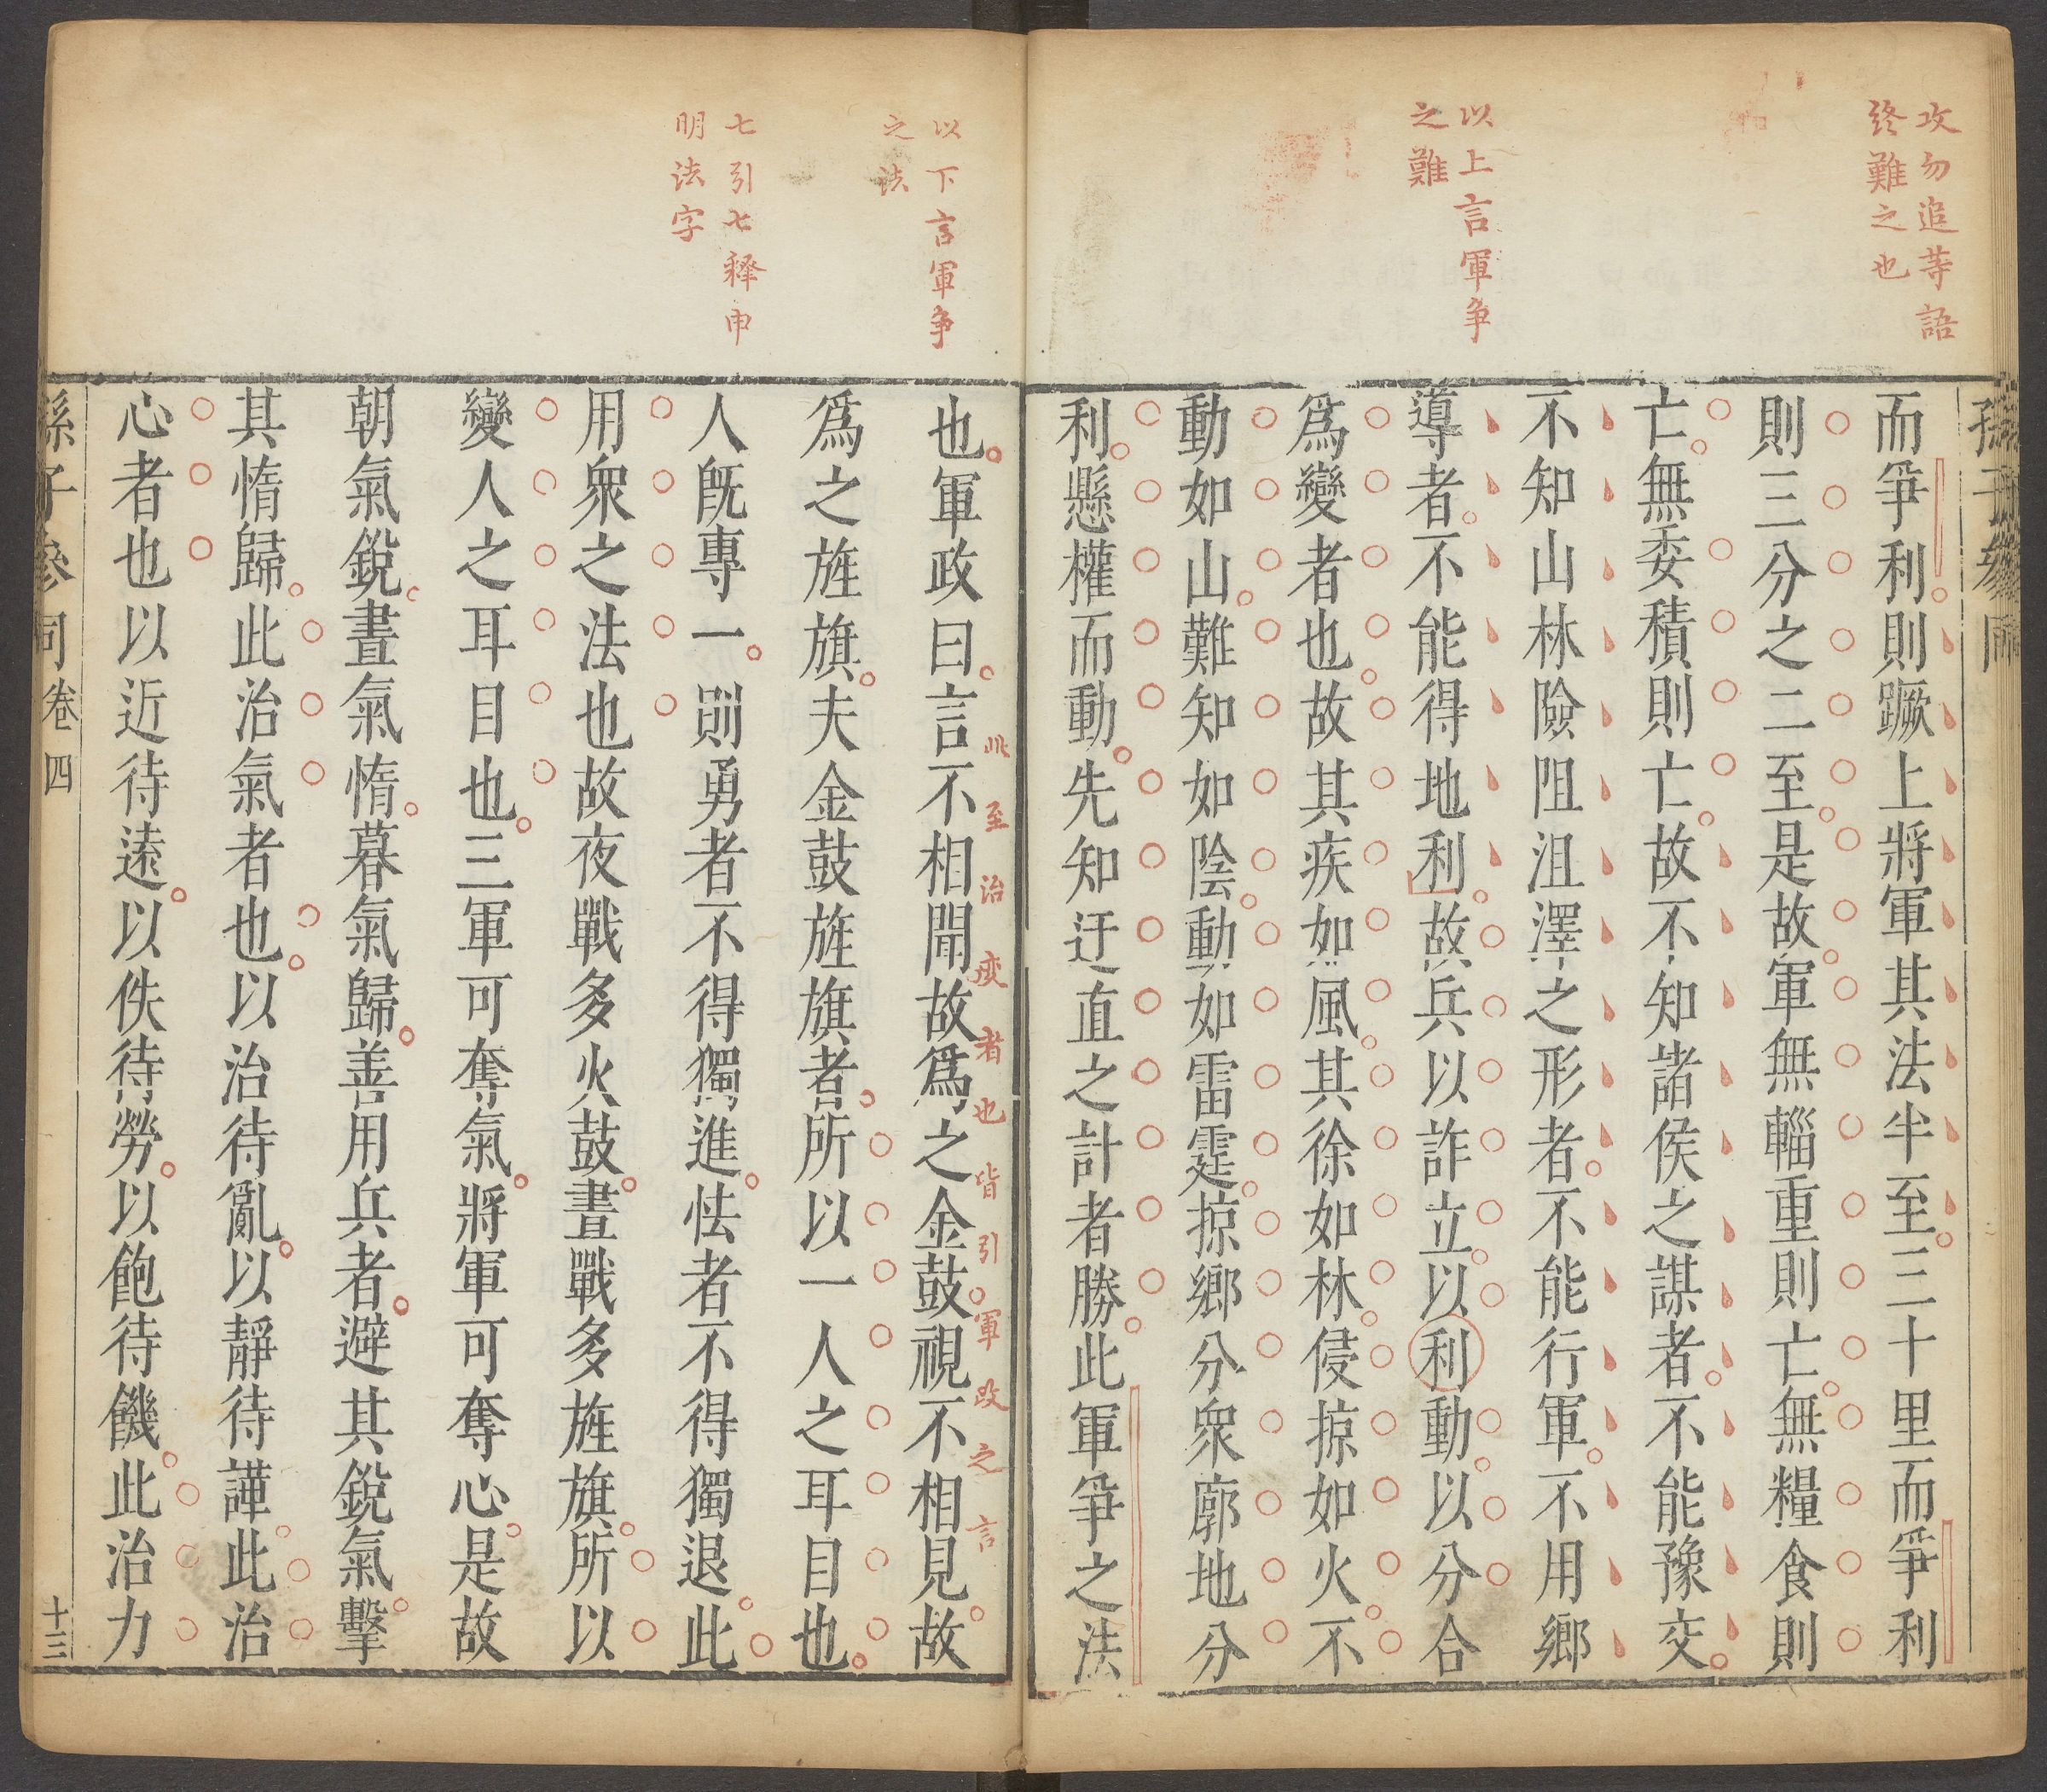 攻勿追等語
終難之也
以上言軍爭
之難
孫子參同
而爭利則蹶上將軍其法半至三十里而爭利
則三分之二至是故軍無輜重則亡無糧食則
亡無委積則亡故不知諸侯之謀者不能豫交
不知山林險阻沮澤之形者不能行軍不用鄉
導者不能得地利故兵以詐立以利動以分合
爲變者也故其疾如風其徐如林侵掠如火不
動如山難知如陰動如雷霆掠鄉分衆廓地分
利懸權而動先知迂直之計者勝此軍爭之法
以下言軍爭
之法
七引七釋申
明法字
也軍政曰言不相聞故爲之金鼓視不相見故
此至治變者也皆引軍政之言
爲之旌旗夫金鼓旌旗者所以一人之耳目也
人旣專一則勇者不得獨進怯者不得獨退此
用衆之法也故夜戰多火鼓晝戰多旌旗所以
變人之耳目也三軍可奪氣將軍可奪心是故
朝氣銳晝氣惰暮氣歸善用兵者避其銳氣擊
其惰歸此治氣者也以治待亂以靜待譁此治
心者也以近待遠以佚待勞以飽待饑此治力
孫子參同卷四
十三